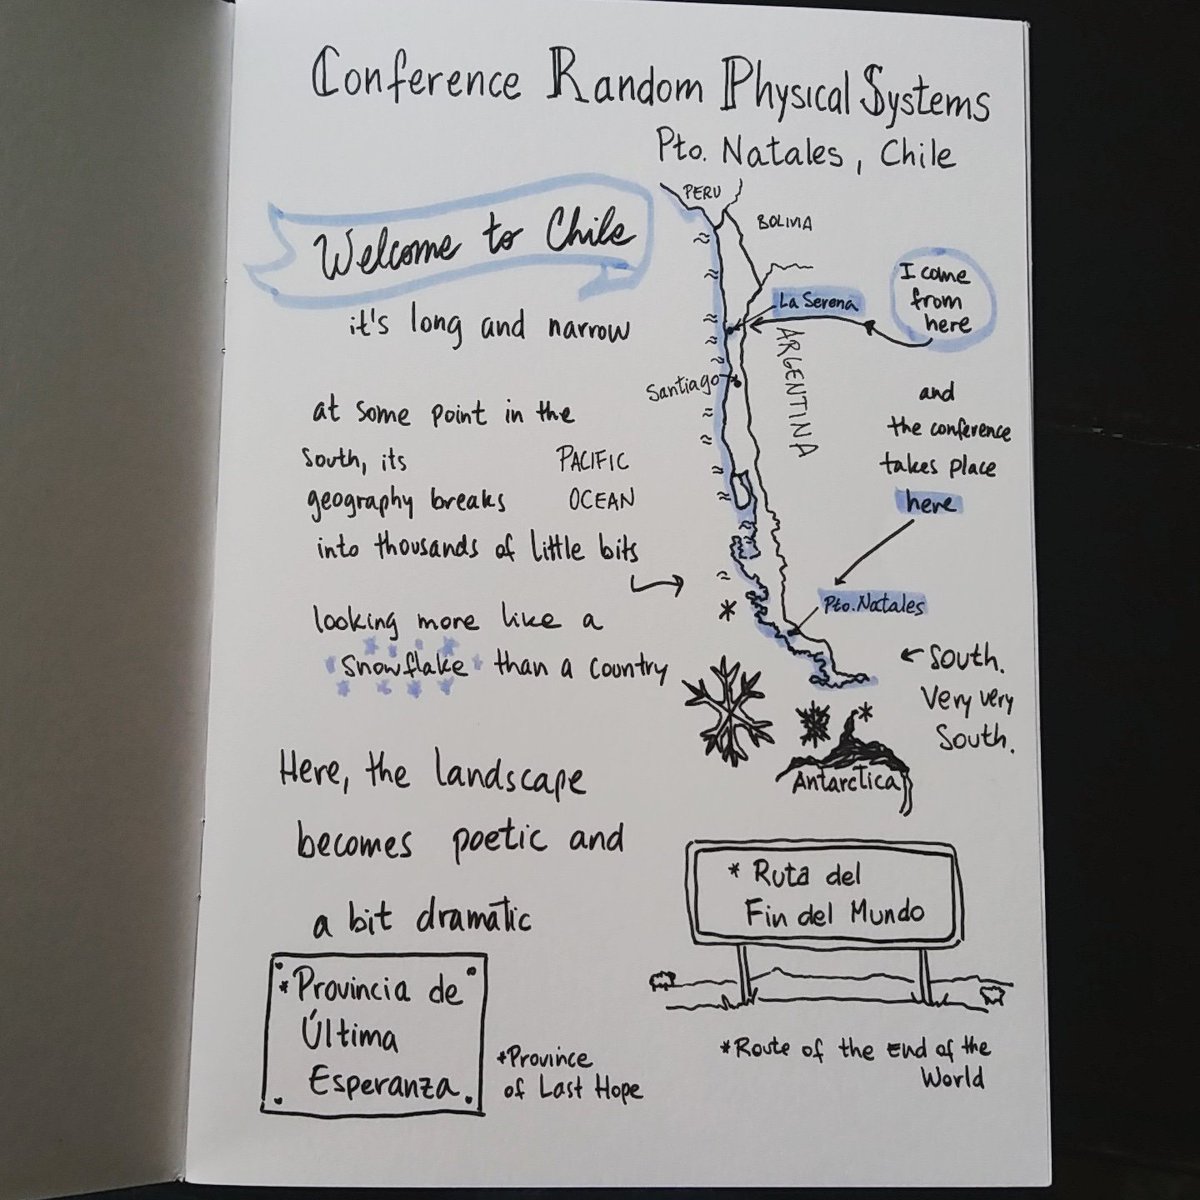 Conference Random Physical Systems
Pto. Natales, Chile
Welcome to Chile
it's long and narrow
at some point in the
south, its
geography breaks
into thousands of little bits
looking more like a
snowflake than a country
PERU
BOLIVIA
La Serena
I come
from
here
ARGENTINA
Santiago
PACIFIC
OCEAN
and
the conference
takes place
here
Pto. Natales
South.
Very very
South.
Antarctica
Here, the landscape
becomes poetic and
a bit dramatic
* Provincia de
Última
Esperanza
*Province
of Last Hope
* Ruta del
Fin del Mundo
*Route of the End of the
World